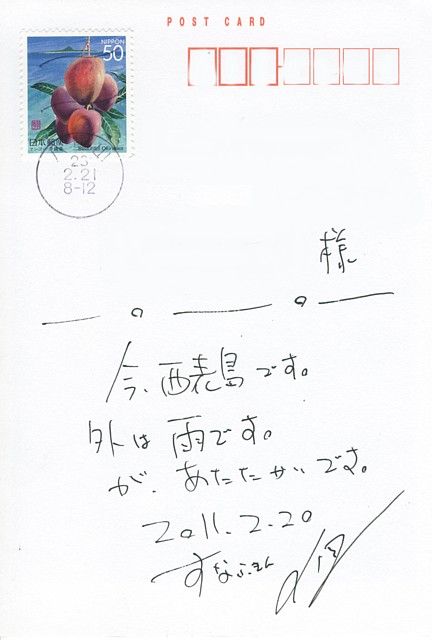 POST CARD
NIPPON
50
日本郵便
23
2.21
8-12
様
今、西表島です。
外は雨です。
が、あたたかいです。
2011.2.20
すなふきん